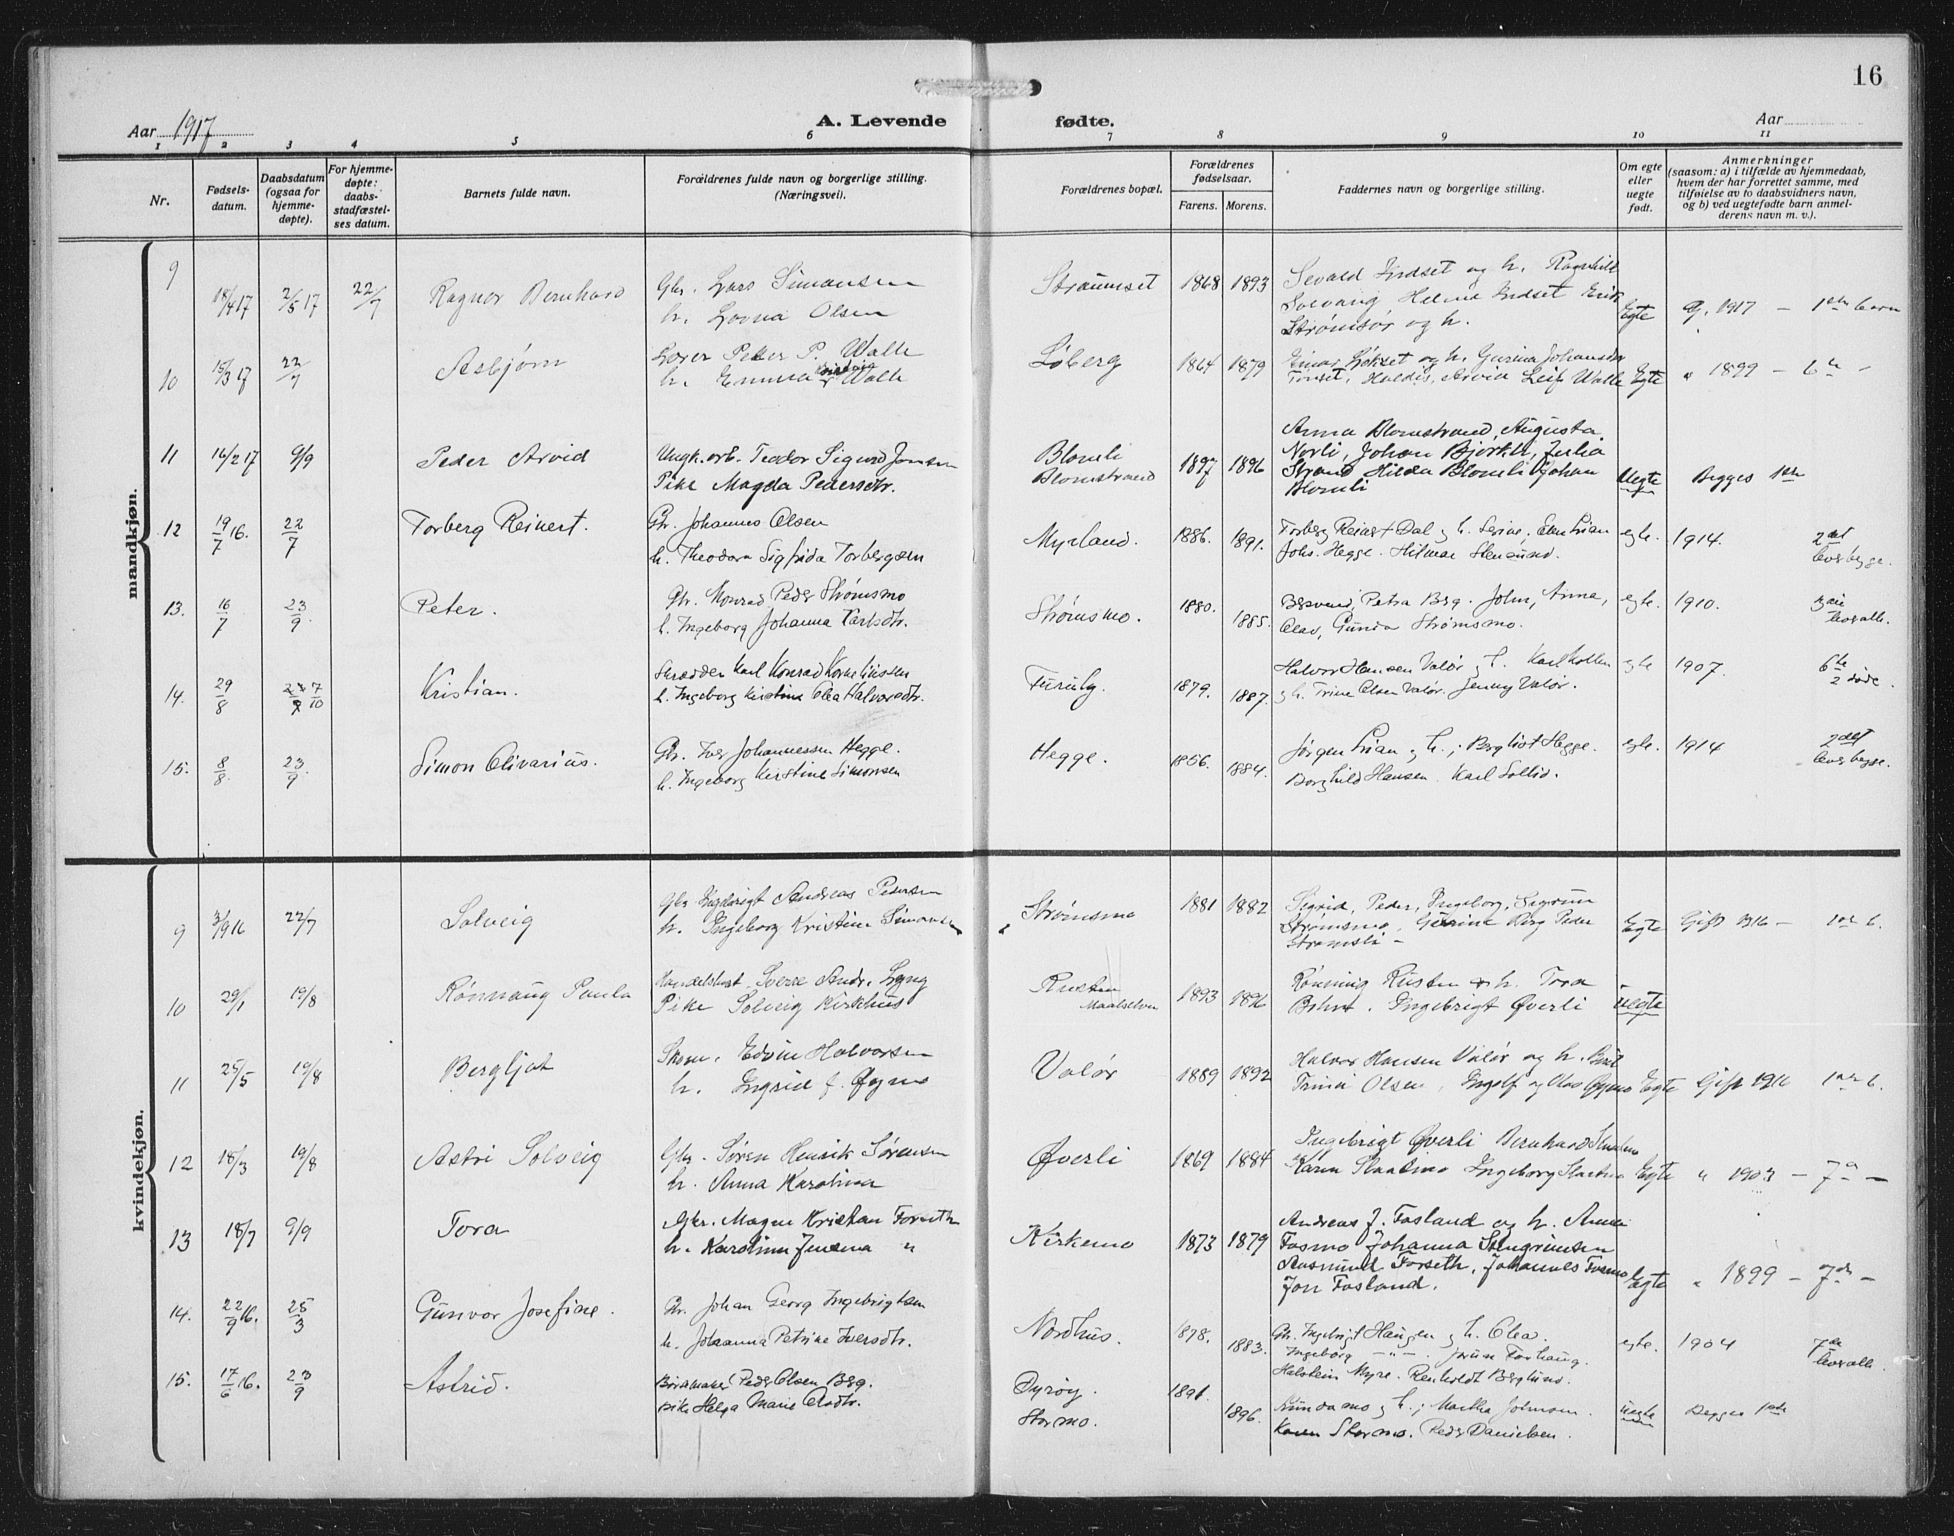 16
Aar 1917
A. Levende fødte.
Aar
1 2 3 4 5 6 7 8 9 10 11
Nr.
Fødsels-
datum.
Daabsdatum
(ogsaa for
hjemme-
døpte).
For hjemme-
døpte:
daabs-
stadfæstel-
ses datum.
Barnets fulde navn.
Forældrenes fulde navn og borgerlige stilling.
(Næringsvei).
Forældrenes bopæl.
Forældrenes
fødselsaar.
Farens. Morens.
Faddernes navn og borgerlige stilling.
Om egte
eller
uegte
født.
Anmerkninger
(saasom: a) i tilfælde av hjemmedaab,
hvem der har forrettet samme, med
tilføielse av to daabsvidners navn,
og b) ved uegtefødte barn anmel-
derens navn m. v.).
mandkjøn.
9 18/4 17 2/5 17 22/7 Ragnar Bernhard
Gbr. Lars Simonsen
h. Lovna Olsen
Straumset 1868 1893
Sevald Indset og h. Ragnhild
Solvang Helma Indset Erik
Strømsør og h.
Egte G. 1917 – 1ste barn
10 15/3 17 22/7 Asbjørn
Lærer Peter P. Walle
h. Emma Walle
Løberg 1864 1879
Einar Løkset og h. Gurina Johansen
Tønset, Haldis, Arvid Leif Walle
Egte " 1899 – 6te
11 16/2 17 9/9 Peder Arvid
Ungk. arb. Teodor Sigurd Jensen
Pike Magda Pedersdtr.
Blomli
Blomstrand
1897 1896
Anna Blomstrand, Augusta
Norli, Johan Bjørkli, Julia
Strand Hilda Blomli Johan
Blomli
Uegte Begges 1ste
12 19/7 16. 22/7 Torberg Reinert.
Gbr. Johannes Olsen
h. Theodora Sigfrida Torbergsen
Myrland. 1886. 1891.
Torberg Reinert Dal og h. Serine, Elen Lian
Johs. Hegge. Hilmar
egte. 1914. 2det
lever begge.
13. 16/7 23/9. Peter.
Gbr. Konrad Peder Strømsmo
h. Ingeborg Johanna Karlsdtr.
Strømsmo. 1880. 1885.
Petra Berg. John, Anna,
Olav, Gunda Strømsmo.
egte. 1910. 3die
lever alle.
14. 29/8 7/10 Kristian.
Skrædder Karl Konrad Korneliussen
h. Ingeborg Kirstine Olea Halvorsdtr.
Furuly. 1879. 1887.
Halvor Hansen Valør og h. Karl Kollen
og h. Trine Olsen Valør. Jenny Valør.
egte 1907. 6te
2 døde.
15. 8/8 23/9. Simon Olivarius.
Gbr. Iver Johannessen Hegge.
h. Ingeborg Kirstine Simonsen
Hegge. 1856. 1884.
Jørgen Lian og h.; Bergliot Hegge.
Borghild Hansen. Karl Sollid.
egte. 1914 2det
lever begge.
kvindekjøn.
9 3/9 16 22/7 Solveig
Gbr Ingebrigt Andreas Pedersen
h. Ingeborg Kristine Simonsen
Strømsmo 1881 1882
Sigrid, Peder, Ingeborg, Sigrun
Strømsmo, Gurine Berg Peder
Strømsli –
Egte Gift 1916 – 1ste b.
10 29/1 19/8 Rønnaug Paula
Handelsbest. Sverre Andr. Lyng
Pike Solveig Kirkhus
Rusten
Maalselven
1893 1896
Rønning Rusten og h. Tora
Ingebrigt Øverli
uegte
11 25/5 19/8 Bergljot
Skom. Edvin Halvorsen
h. Ingrid f. Øymo
Valør 1889 1892
Halvor Hansen Valør og h. Birit
Trine Olsen, Ingolf og Olav Øymo
Egte Gift 1916 1ste b.
12 18/3 19/8 Astri Solveig
Gbr. Søren Henrik Sørensen
h. Anna Karolina
Øverli 1869 1884
Ingebrigt Øverli Bernhard Slaatmo
Karen Slaatmo Ingeborg Slaatmo
Egte " 1903 – 7de –
13 18/7 9/9 Tora
Gbr. Magne Kristian Forseth
h. Karolina Jensina "
Kirkemo 1873 1879
Andreas J. Fosland og h. Anna
Fosmo Johanna Stengrimsen
Aasmund Forseth, Johannes Fosmo
Jon Fosland.
Egte " 1899 – 7de –
14. 22/9 16. 25/3 Gunvor Josefine.
Gbr. Johan Georg Ingebrigtsen
h. Johanna Petrine Iversdtr.
Nordhus. 1878. 1883.
Gbr. Ingebrigt Haugen og h. Olea.
Ingeborg – " – .
Halstein Myre. Renholdt Berglund.
egte. 1904 7de
lever alle.
15. 17/6 16. 23/9 Astrid.
Peder Olsen Berg.
pike Helga Marie Olsdtr.
Dyrøy.
Stormo.
1891. 1896.
og h.; Martha Johnsen.
Karen Stormo. Peder Danielsen.
uegte Begges 1ste